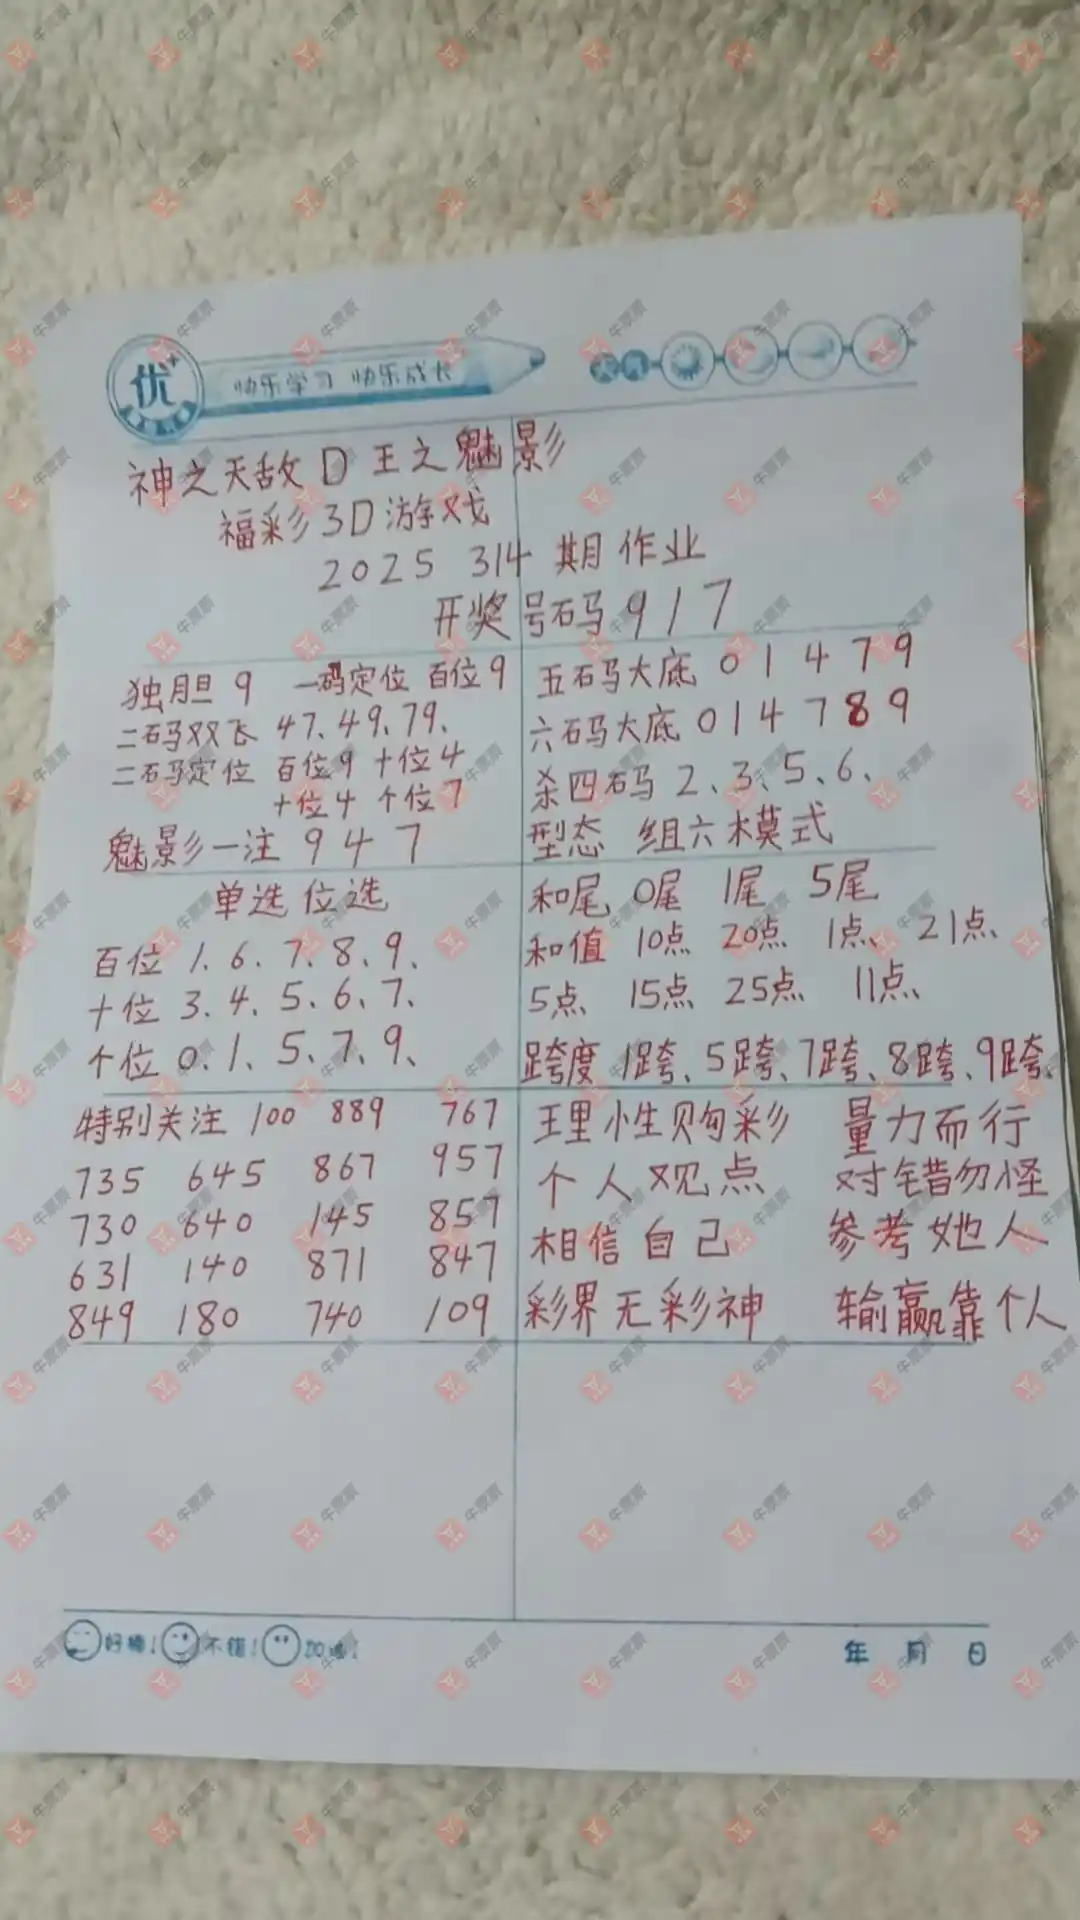 优
快乐学习 快乐成长
神之天敌D王之魅影
福彩3D游戏
2025 314 期作业
开奖号码 917
独胆 9 一码定位 百位9
二码双飞 47、49、79、
二码定位 百位9 十位4
十位4 个位7
魅影一注 9 4 7
五码大底 0 1 4 7 9
六码大底 0 1 4 7 8 9
杀四码 2、3、5、6、
型态 组六模式
单选位选
百位 1、6、7、8、9、
十位 3、4、5、6、7、
个位 0、1、5、7、9、
和尾 0尾 1尾 5尾
和值 10点 20点 1点、21点、
5点 15点 25点 11点、
跨度 1跨、5跨、7跨、8跨、9跨、
特别关注 100 889 767
735 645 867 957
730 640 145 857
631 140 871 847
849 180 740 109
理性购彩 量力而行
个人观点 对错勿怪
相信自己 参考她人
彩界无彩神 输赢靠个人
好棒! 不错! 加油!
年 月 日
牛票票